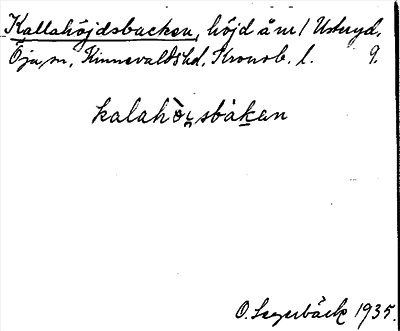 Kallahöjdsbacken, höjd å nr 1 Usteryd,
Öja, sn, Kinnevalds hd, Kronob. l. 9.
kalahò̀ɪ̯sbàkan
O. Segerbäck 1935.